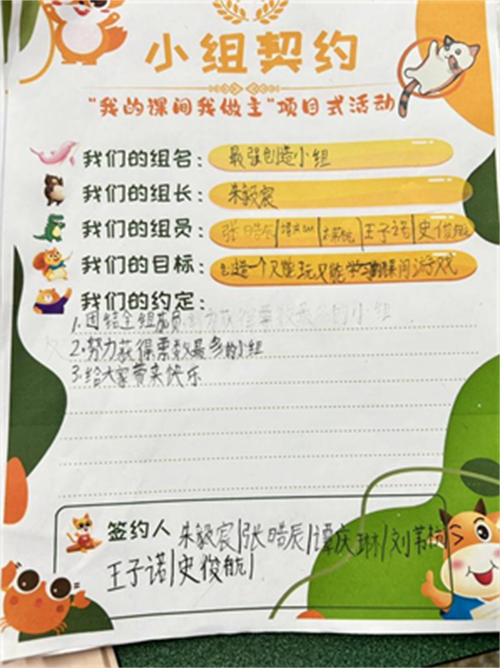 小组契约
"我的课间我做主"项目式活动
我们的组名：最强创造小组
我们的组长：朱毅宸
我们的组员：张皓辰|王子诺|史俊航
我们的目标：创造一个又能玩又能学习的课间游戏
我们的约定：
1.团结全组成员
2.努力获得票数最多的小组
3.给大家带来快乐
签约人 朱毅宸|张皓辰|谭庆琳|刘芾杭
王子诺|史俊航|